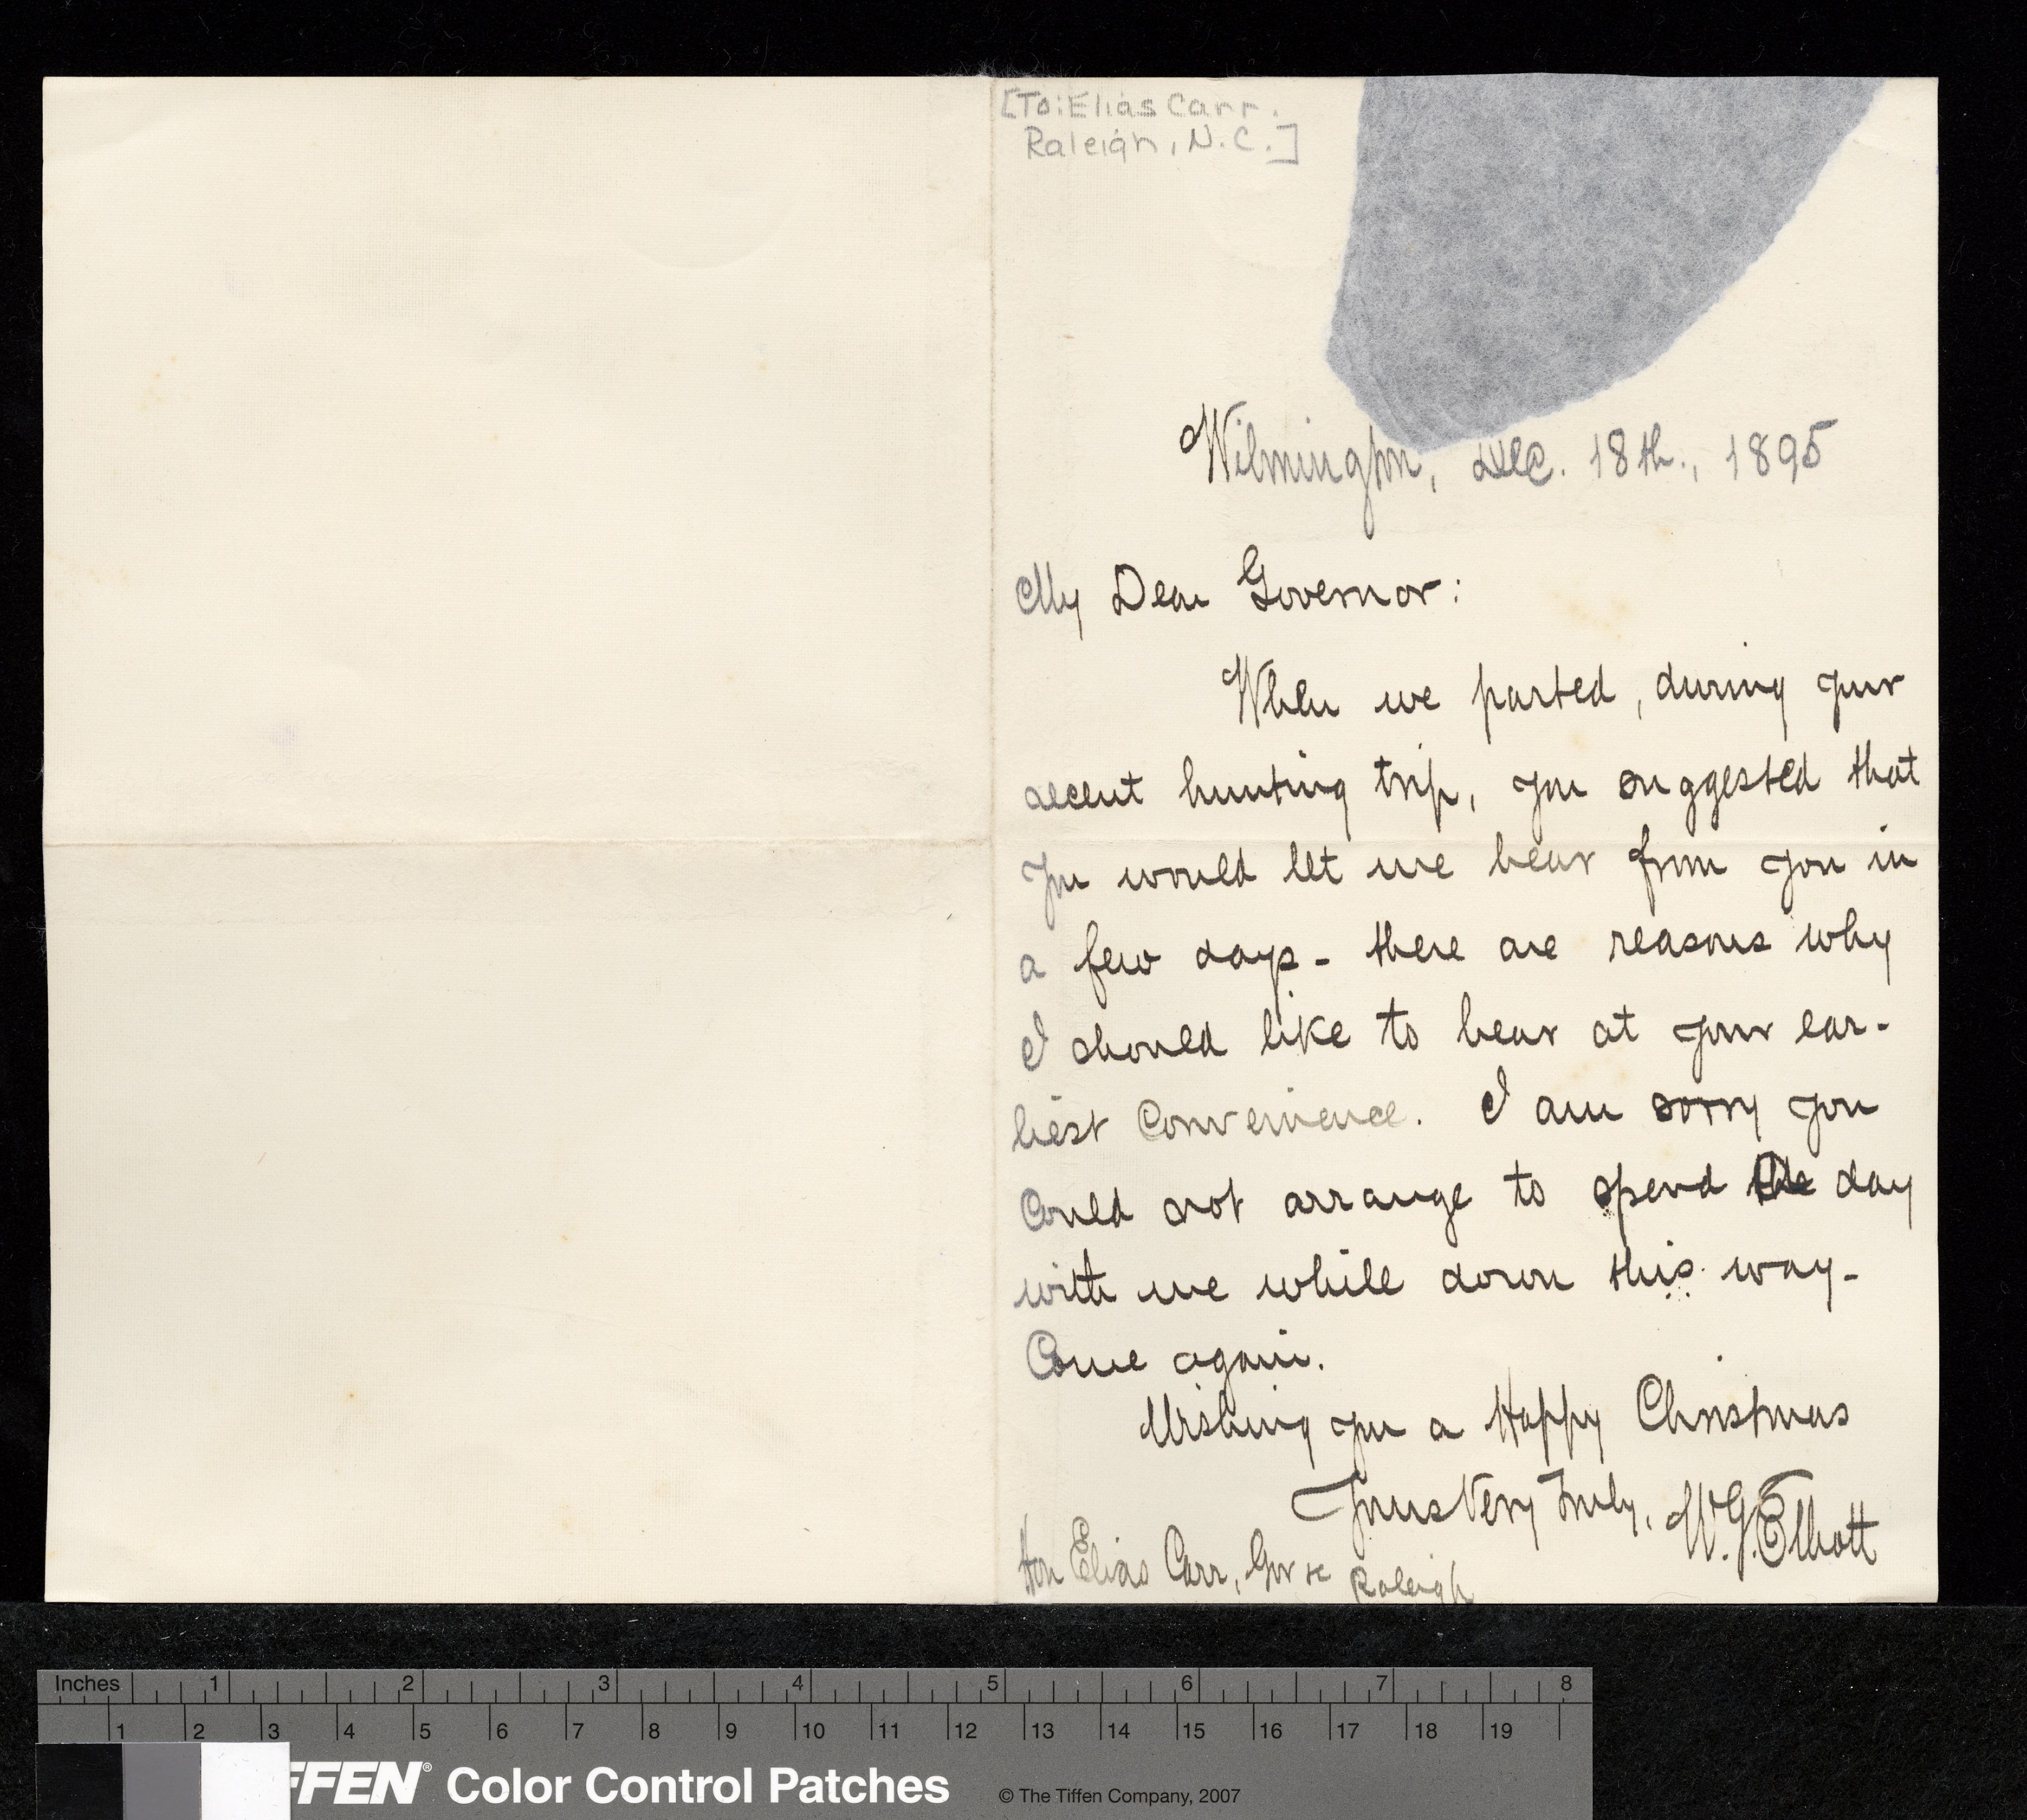 [To: Elias Carr.
Raleigh, N.C.]
Wilmington, Dec. 18th., 1895
My Dear Governor:
When we parted, during your
recent hunting trip, you suggested that
you would let me hear from you in
a few days - there are reasons why
I should like to hear at your ear-
liest Convenience. I am sorry you
Could not arrange to spend the day
with me while down this way -
Come again.
Wishing you a Happy Christmas
Yours Very Truly, W. G. Elliott
Hon Elias Carr, Gov &c Raleigh
Inches 1 2 3 4 5 6 7 8
1 2 3 4 5 6 7 8 9 10 11 12 13 14 15 16 17 18 19
FFEN® Color Control Patches © The Tiffen Company, 2007